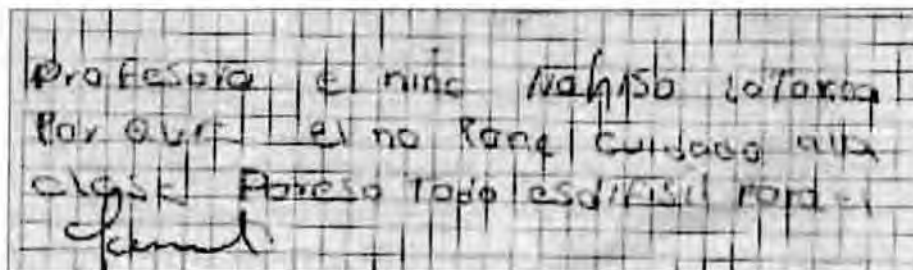 Profesora el nino Nahiso laTarea
Por Que el no Pone Cuidado alla
clase Poreso Todo esdificil para el